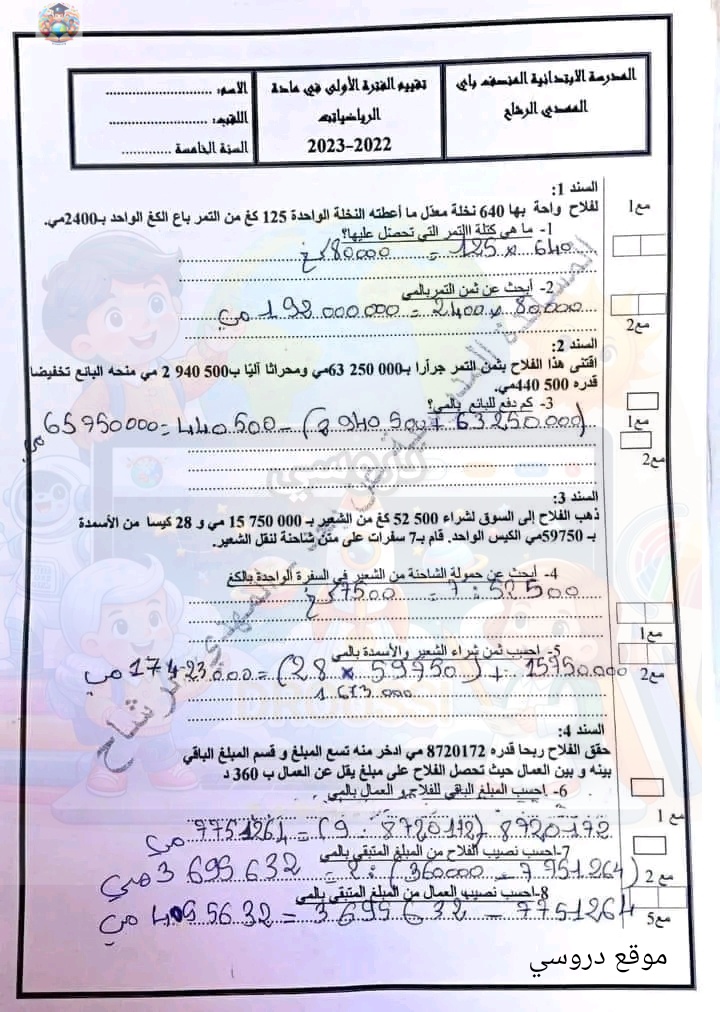 المدرسة الابتدائية المنصف باي
المهدي الرشاح
تقييم الفترة الأولى في مادة
الرياضيات
2023-2022
الاسم: ............................
اللقب: ..........................
السنة الخامسة .............
السند 1:
لفلاح واحة بها 640 نخلة معدّل ما أعطته النخلة الواحدة 125 كغ من التمر باع الكغ الواحد بـ2400مي.
مع1
1- ما هي كتلة االتمر التي تحصّل عليها؟
640 × 125 = 80000 كغ
2- أبحث عن ثمن التمر بالمي
80000 × 2400 = 192 000 000 مي
مع2
السند 2:
اقتنى هذا الفلاح بثمن التمر جرآرا بـ000 250 63مي ومحراثا آليّا ب500 940 2 مي منحه البائع تخفيضا
قدره 500 440مي.
3- كم دفع للبائع بالمي؟
مع1
(63250000 + 2940500) - 440500 = 65750000 مي
مع2
السند 3:
ذهب الفلاح إلى السوق لشراء 500 52 كغ من الشعير بـ 000 750 15 مي و 28 كيسا من الأسمدة
بـ 59750مي الكيس الواحد. قام بـ7 سفرات على متن شاحنة لنقل الشعير.
4- أبحث عن حمولة الشاحنة من الشعير في السفرة الواحدة بالكغ
52500 : 7 = 7500 كغ
مع1
5- احسب ثمن شراء الشعير والأسمدة بالمي
15750000 + (59750 × 28) = 17423000 مي
مع2
1 673 000
السند 4:
حقق الفلاح ربحا قدره 8720172 مي ادخر منه تسع المبلغ و قسم المبلغ الباقي
بينه و بين العمال حيث تحصل الفلاح على مبلغ يقل عن العمال ب 360 د
6- احسب المبلغ الباقي للفلاح و العمال بالمي
مع1
8720172 - (8720172 : 9) = 7751264 مي
7-احسب نصيب الفلاح من المبلغ المتبقي بالمي
(7751264 - 360000) : 2 = 3 695 632 مي
مع2
8-احسب نصيب العمال من المبلغ المتبقي بالمي
7751264 - 3695632 = 4055632 مي
مع5
موقع دروسي